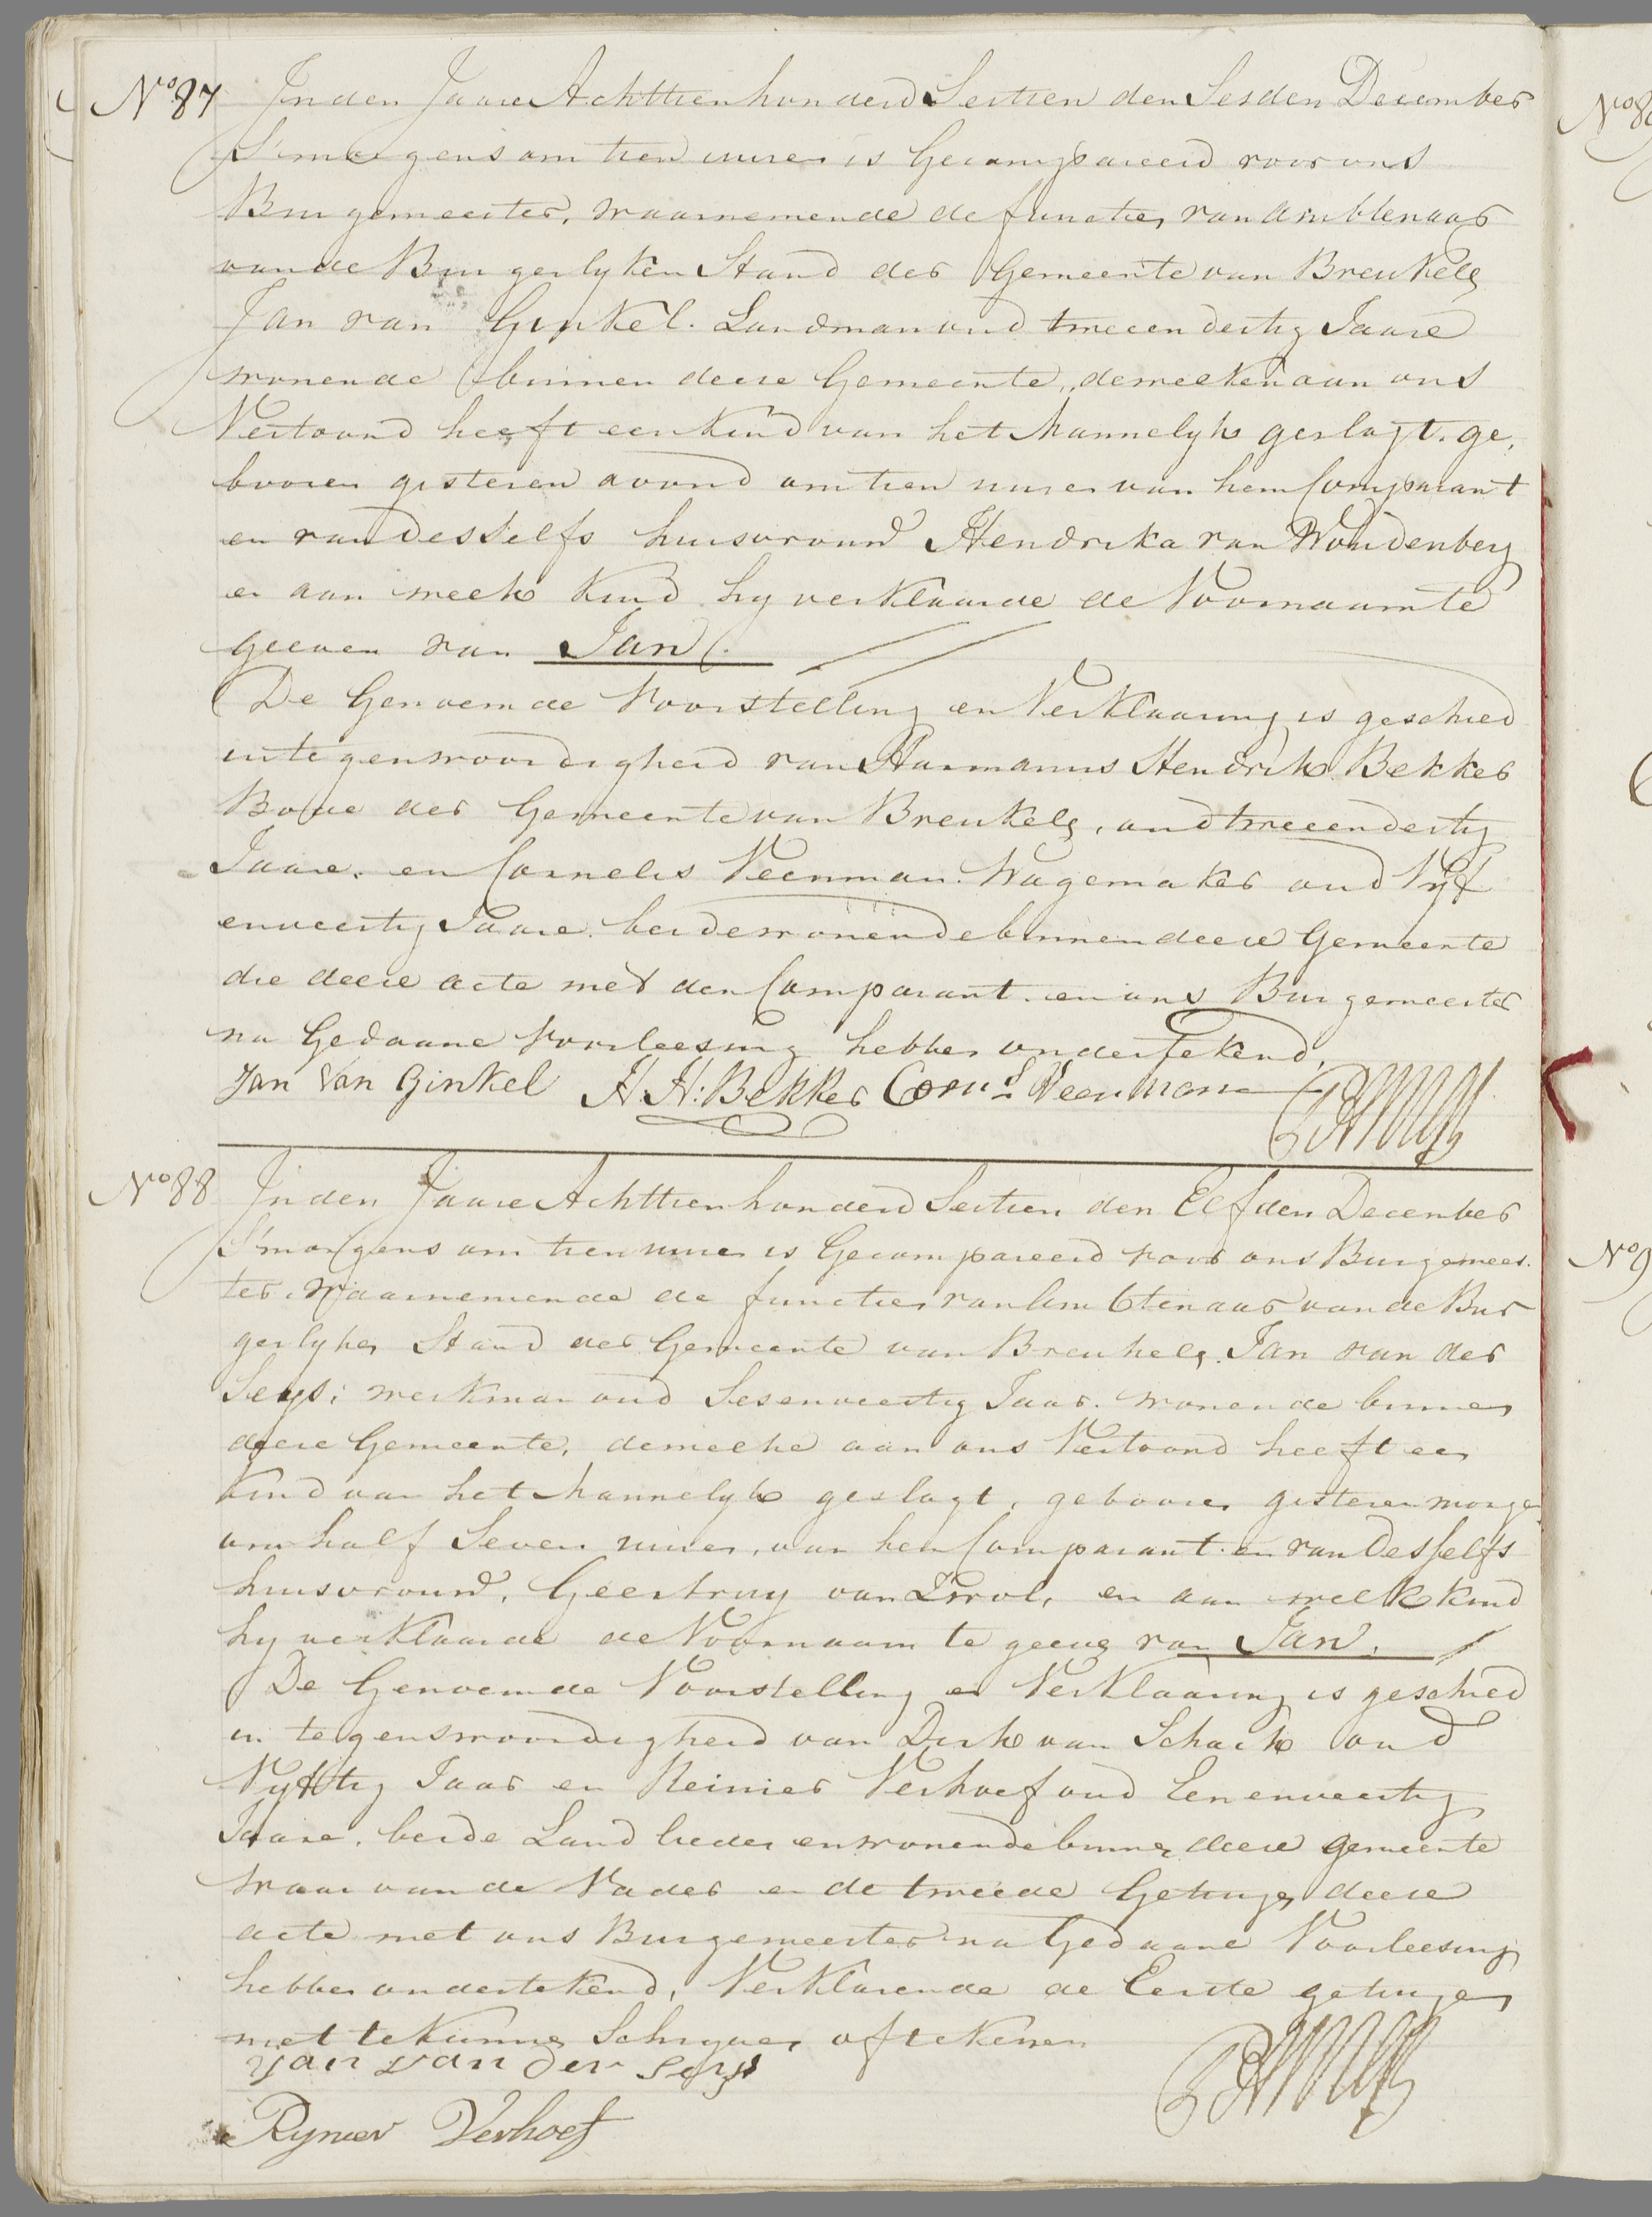 No 87 In den Jaare Achttienhonderd Sestien den Sesden December
S'morgens om tien uuren is Gecompareerd voor ons
Burgemeester, waarnemende de functien van Ambtenaar
van de Burgerlyken Stand der Gemeente van Breukelen
Jan van Ginkel. Landman oud tweeendertig Jaare
wonende binnen deese Gemeente, dewelken aan ons
Vertoond heeft een kind van het Mannelyk geslagt. ge,
booren gisteren avond om tien uuren van hem Comparant
en van desselfs huisvrouw Hendrika van Woudenberg
en aan welk Kind hy verklaarde de Voornaam te
geeven van Jan.
De Genoemde Voorstelling en Verklaaring is geschied
in tegenswoordigheid van Harmanus Hendrik Bekker
Bode der Gemeente van Breukelen, oud tweeendertig
Jaare. en Cornelis Veenman. Wagemaker oud Vyf
enveertig Jaare. beide wonende binnen deese Gemeente
die deese acte met den Comparant. en ons Burgemeester
na Gedaane Voorleesing hebben ondertekend,
Jan Van Ginkel H H: Bekker Corns Veenman
No 88 In den Jaare Achttienhonderd Sestien den Elfden December
S'morgens om tien uuren is Gecompareerd voor ons Burgemees.
ter. Waarnemende de functien van Ambtenaar van de Bur
gerlyken Stand der Gemeente van Breukelen. Jan van der
Seys; werkman oud Sesenveertig Jaar. wonende binnen
deese Gemeente, dewelke aan ons Vertoond heeft een
Kind van het Mannelyk geslagt, gebooren gisteren morgen
om half Seven uuren, van hem Comparant. en van desselfs
huisvrouw, Geertruy van Zwol, en aan welk kind
hy verklaarde de Voornaam te geeven van Jan.
De Genoemde Voorstelling en Verklaaring is geschied
in tegenswoordigheid van Dirk van Schaik oud
Vyftig Jaar en Reinier Verhoef oud Eenenveertig
Jaare. beide Landlieden en wonende binnen deese gemeente
waar van de Vader en de tweede Getuigen deese
acte met ons Burgemeester na Gedaane Voorleesing
hebben ondertekend, Verklarende de Eerste getuigen
niet te kunnen Schryven of tekenen
Jan van der Seys
Rynier Verhoef